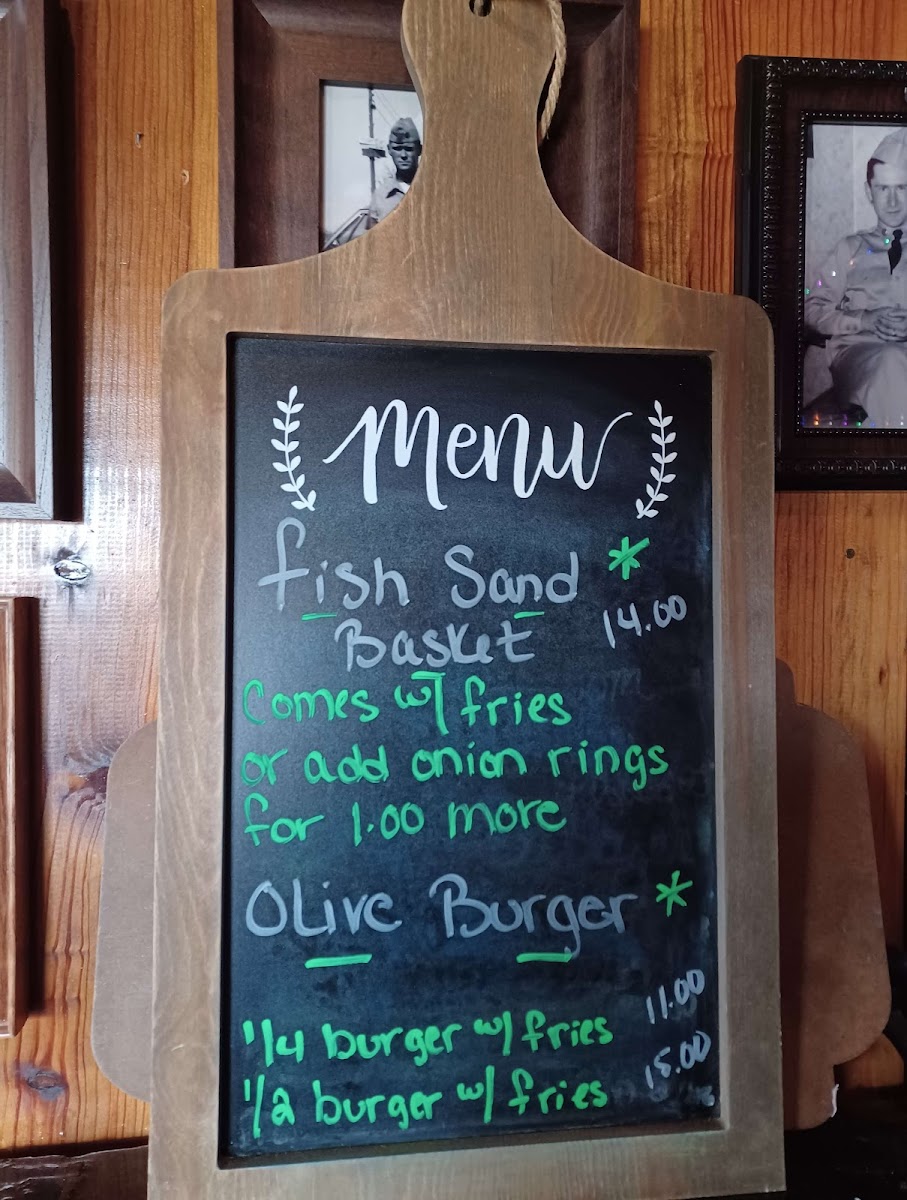 Menu
fish Sand *
Basket 14.00
Comes w/ fries
or add onion rings
for 1.00 more
Olive Burger *
1/4 burger w/ fries 11.00
1/2 burger w/ fries 15.00